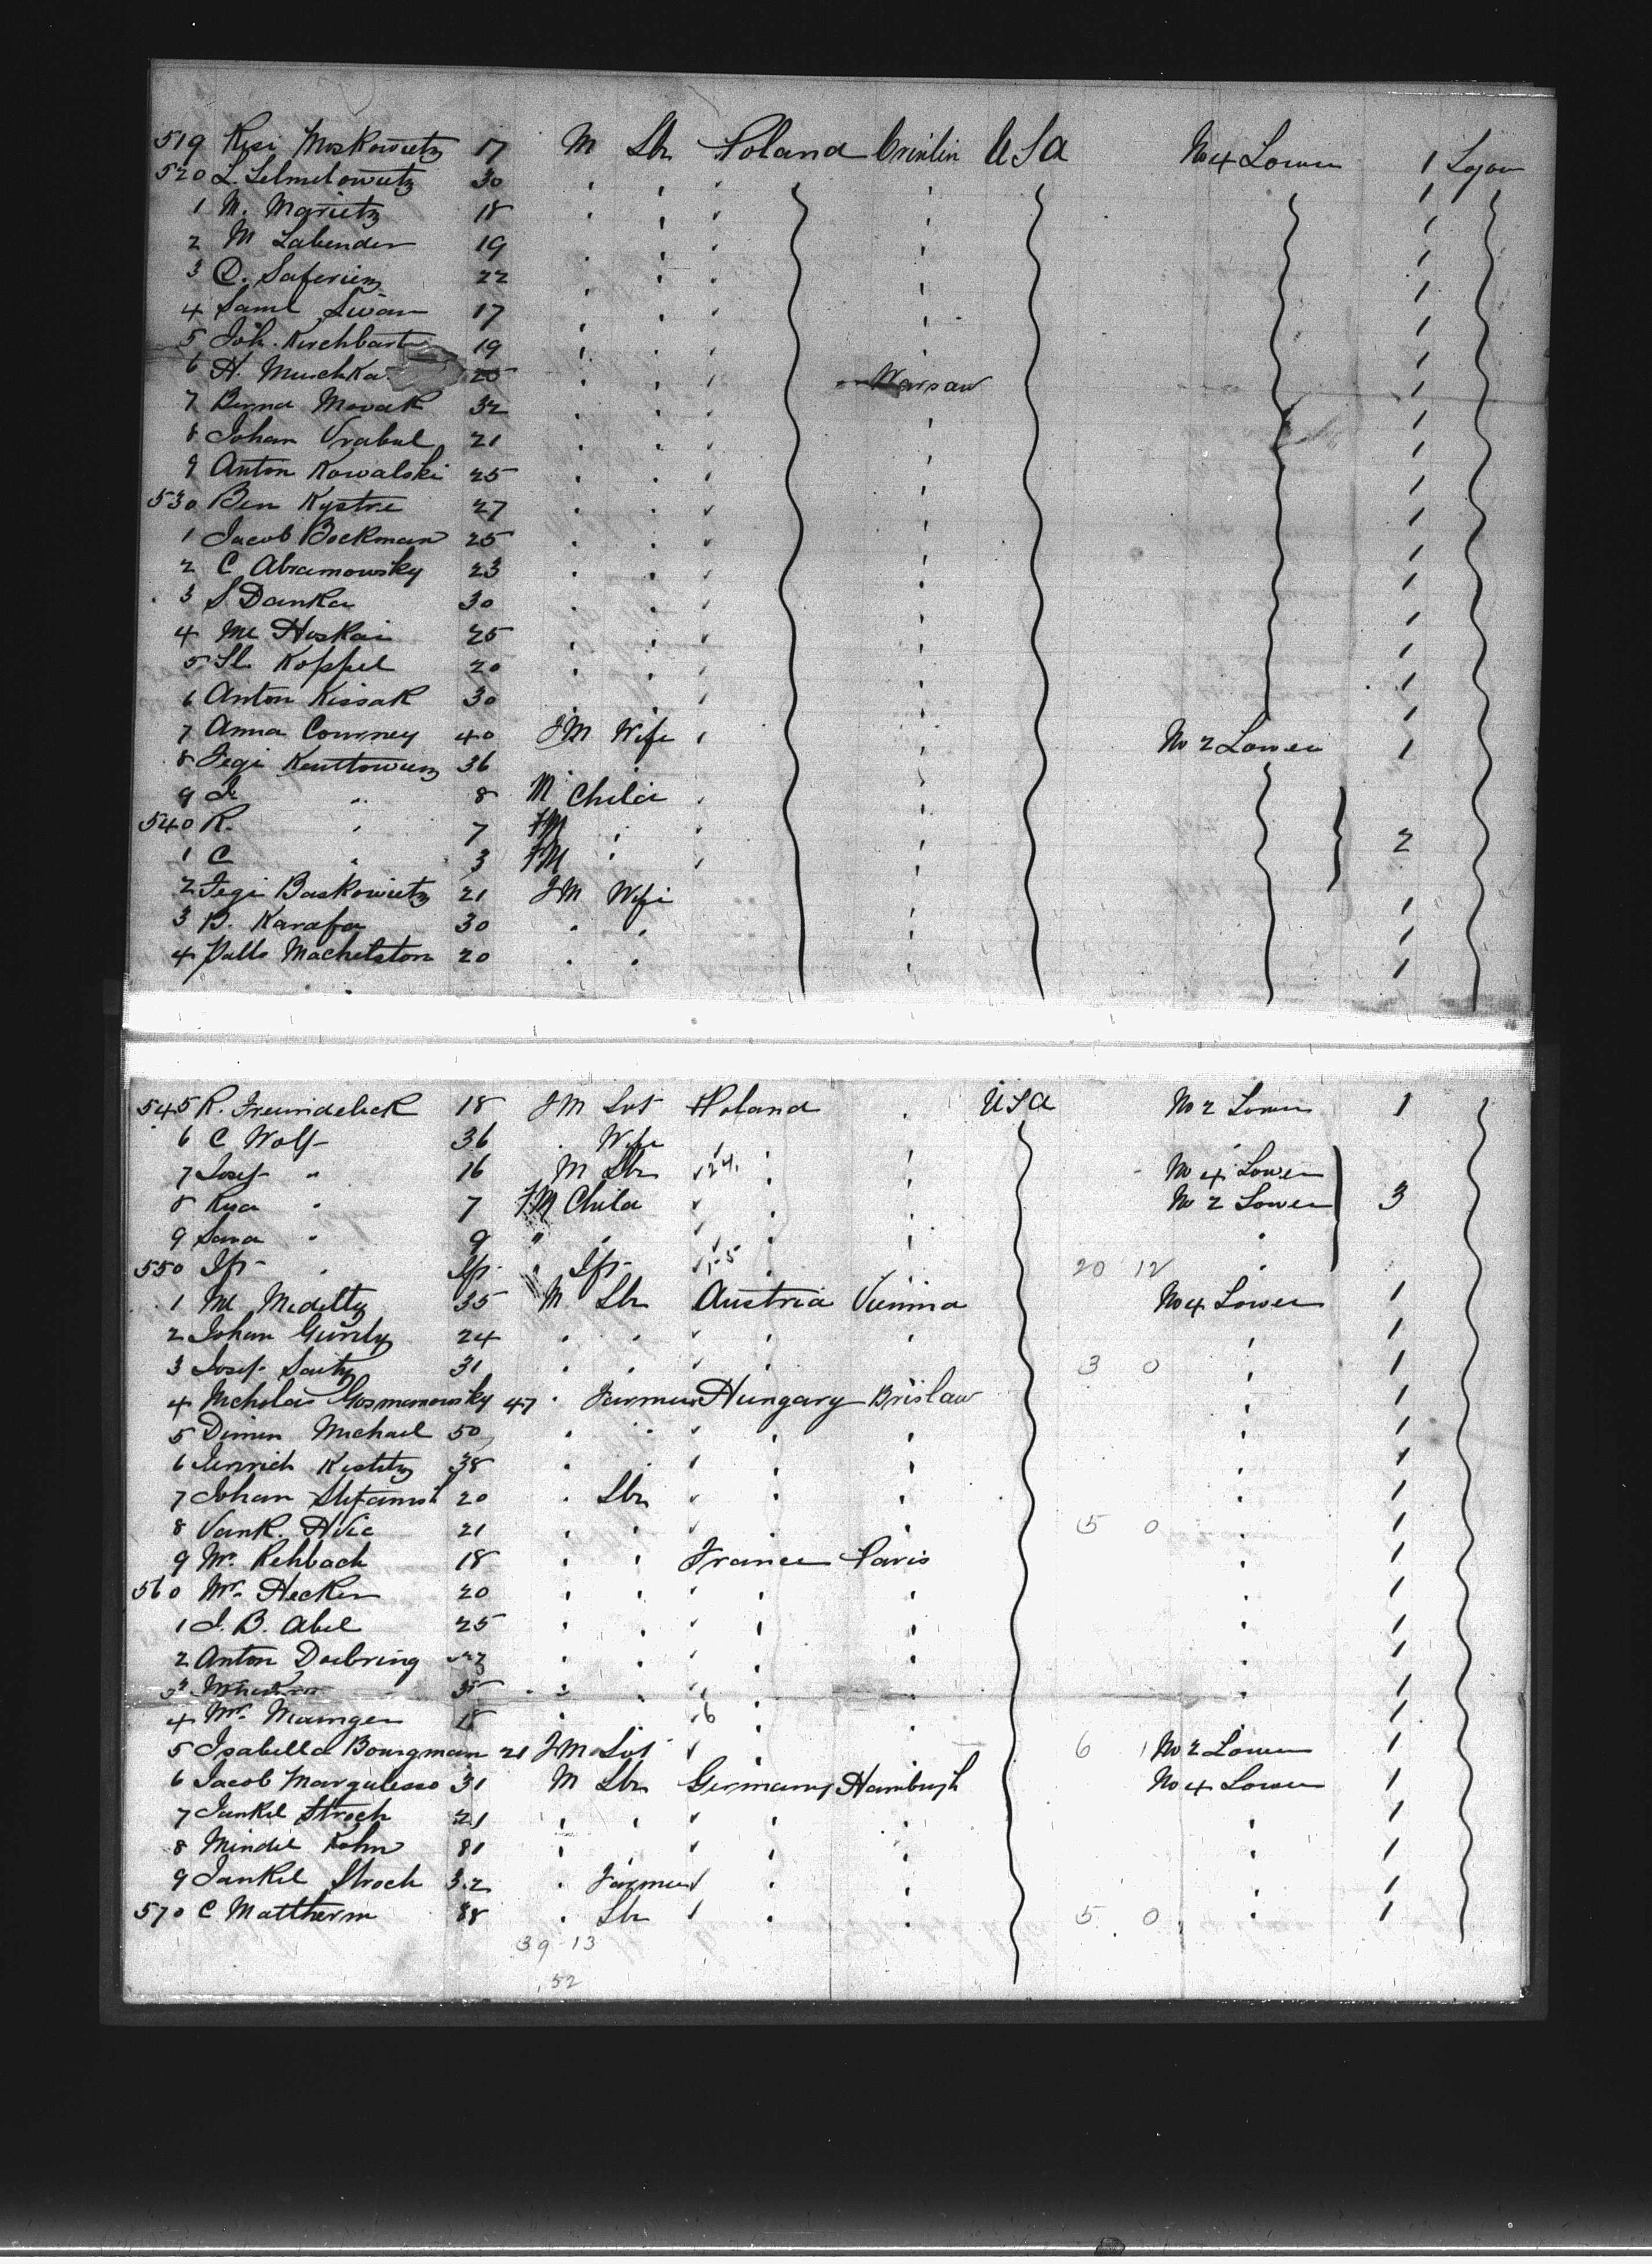 519 Resi Moskowietz 17 M Lbr Poland Crinlin USA No 4 Lower 1 Sojour
520 L. Selmelowietz 30 " " " " 1
1 M. Marietz 18 " " " " 1
2 M Labender 19 " " " " 1
3 D. Saferienz 22 " " " " 1
4 Saml Swan 17 " " " " 1
5 Joh. Kirchbart 19 " " " " 1
6 H. Muschka 25 " " " Warsaw 1
7 Bernd Movak 32 " " " " 1
8 Johan Vrabul 21 " " " " 1
9 Anton Kowalski 25 " " " " 1
530 Ben Kystre 27 " " " " 1
1 Jacob Bockman 25 " " " " 1
2 C Abramowsky 23 " " " " 1
3 S Danka 30 " " " " 1
4 M Hoskai 25 " " " " 1
5 Sl. Koppel 20 " " " " 1
6 Anton Kissak 30 " " " " 1
7 Anna Courney 40 FM Wife " " No 2 Lower 1
8 Fegi Kenttowienz 36
9 J. " 8 M Child " "
540 R. " 7 FM " " " 2
1 C " 3 FM " " "
2 Fegi Baskowietz 21 FM Wife " 1
3 B. Karafa 30 " " " 1
4 Palls Machelston 20 " " " 1
545 R. Freundelick 18 FM Svt Poland " USA No 2 Lower 1
6 C Wolf 36 " Wife " " "
7 Josef " 16 M Lbr 24 " " No 4 Lower
8 Rysa " 7 FM Child " " " No 2 Lower 3
9 Sara " 9 " " " " " "
550 Ift " Ift " Ift 15 " 20 12 "
1 M Medeltz 35 M Lbr Austria Vienna No 4 Lower 1
2 Johan Gurely 24 " " " " " " 1
3 Josef Saitz 31 " " " " 3 0 " 1
4 Nicholas Gosmanowsky 47 " Farmer Hungary Brislaw " 1
5 Dimin Michael 50 " " " " " " 1
6 Heinrich Kestitz 38 " " " " " 1
7 Johan Stefanist 20 " Lbr " " " " 1
8 Vank. HVic 21 " " " " " 5 0 " 1
9 Mr. Rehbach 18 " " France Paris " 1
560 Mr. Hecker 20 " " " " " " 1
1 J. B. Abel 25 " " " " " " 1
2 Anton Doebring 27 " " " " " " 1
3 35 " " " " " " 1
4 Mr. Mainger 18 " 6 " " 1
5 Isabella Bourgman 21 FM Svt " " 6 1 No 2 Lower 1
6 Jacob Margulesso 31 M Lbr Germany Hamburgh No 4 Lower 1
7 Jankel Stroch 21 " " " " " " 1
8 Mindel Kohn 31 " " " " " 1
9 Jankel Stroch 32 " Farmer " " " " 1
570 C Mattherm 38 " Lbr " " " 5 0 " 1
39 13
52